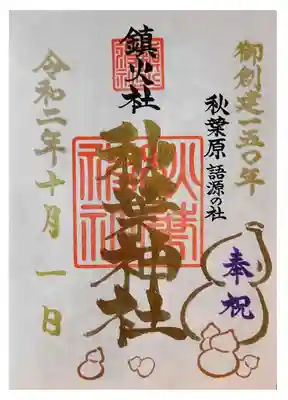 御創建一五〇年
秋葉原 語源の社
奉祝
鎮火社
秋葉神社
令和二年十月一日